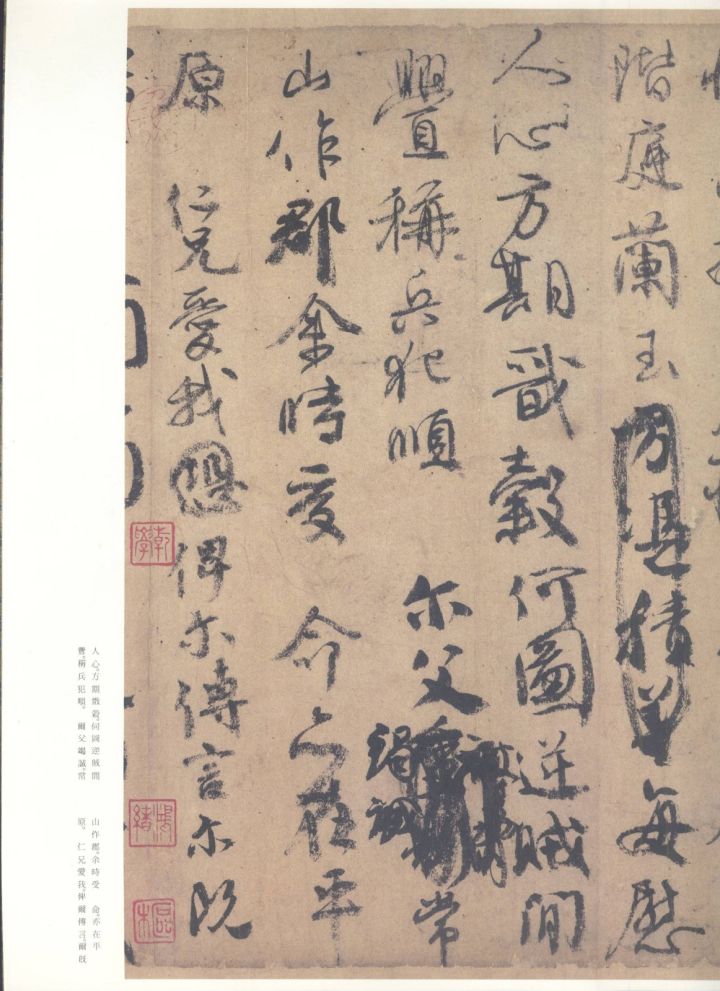 階庭蘭玉方憑積善每慰
人心方期戩穀何圖逆賊閒
舋稱兵犯順 尔父 竭誠 常
山作郡余時受 命亦在平
原 仁兄愛我恐俾尔傳言尔既
人心。方期戩穀。何圖逆賊閒
釁。稱兵犯順。 爾父竭誠。常
山作郡。余時受 命。亦在平
原。 仁兄愛我。俾爾傳言。爾既